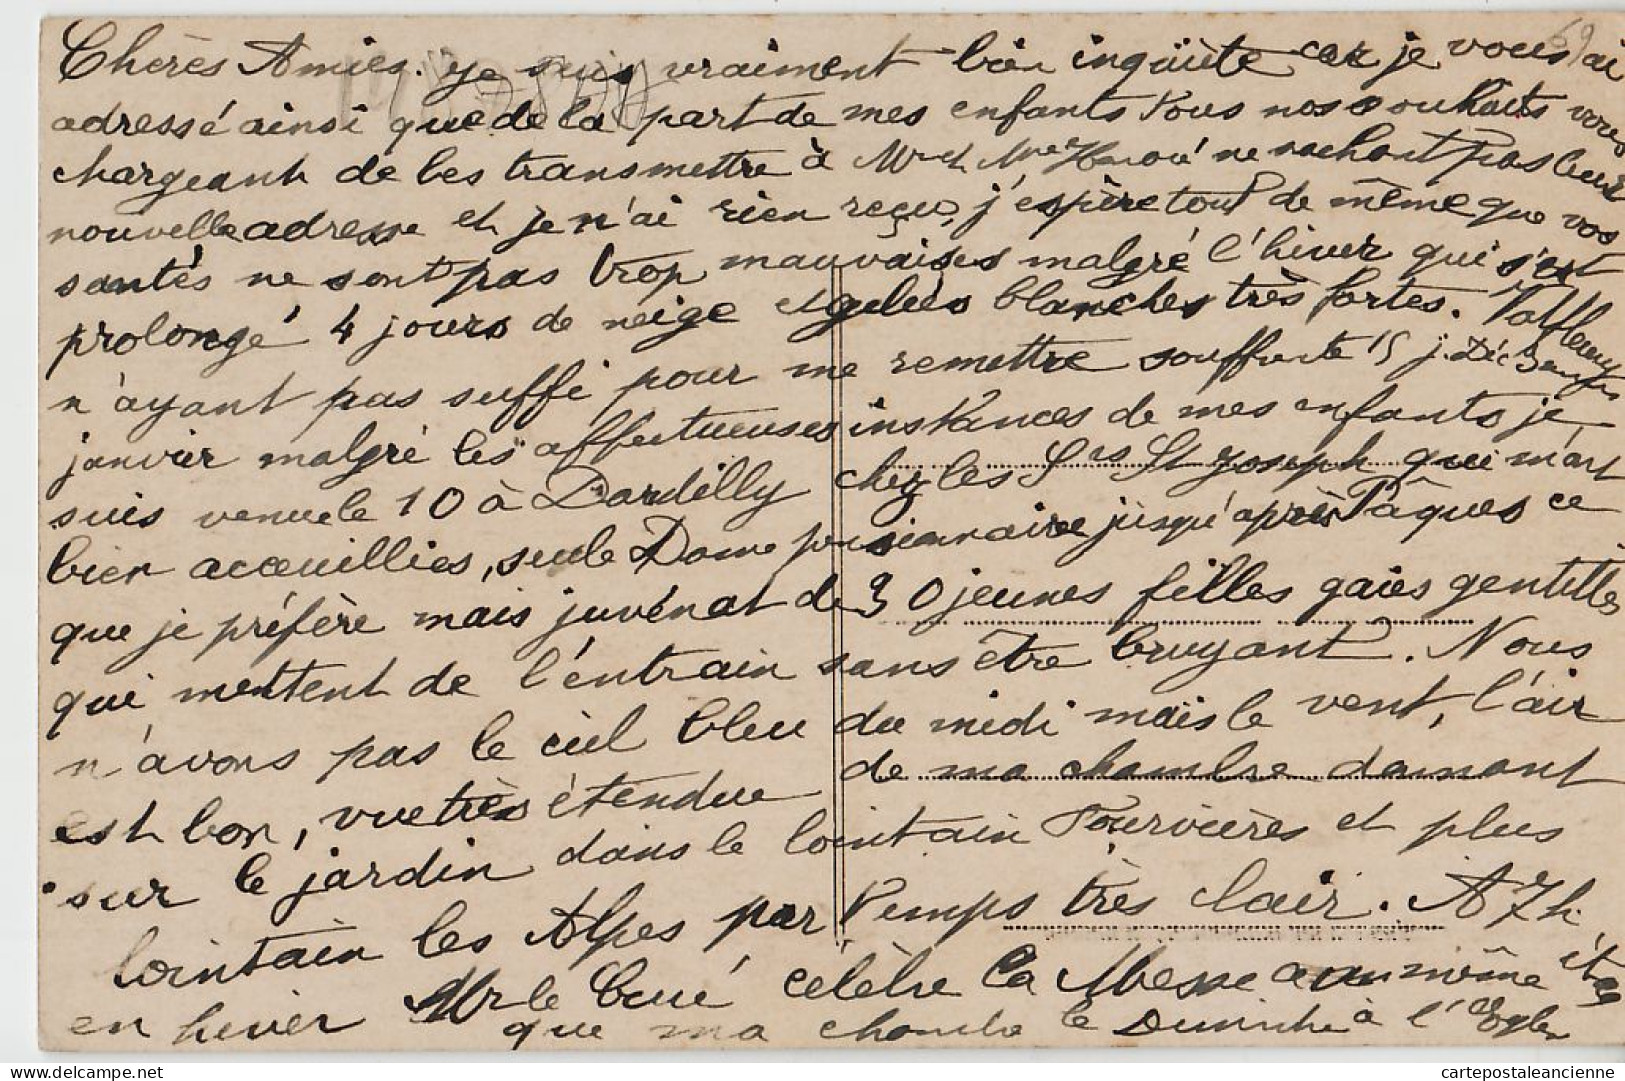 Chères Amies. je suis vraiment bien inqüiète car je vous ai
adressé ainsi que de la part de mes enfants tous nos souhaits vous
chargeant de les transmettre à Mr et Mme ne sachant pas leur
nouvelle adresse et je n'ai rien reçu, j'espère tout de même que vos
santés ne sont pas trop mauvaises malgré l'hiver qui s'est
prolongé 4 jours de neige et gelées blanches très fortes. Valfleury
n'ayant pas suffi pour me remettre souffrante 15 j. Déc
janvier malgré les affectueuses instances de mes enfants je
suis venue le 10 à Dardilly chez les Srs St Joseph qui m'ont
bien accueillies, seule Dame pensionnaire jusqu'après Pâques ce
que je préfère mais juvénat de 30 jeunes filles gaies gentilles
qui mettent de l'entrain sans être bruyant. Nous
n'avons pas le ciel bleu du midi mais le vent, l'air
est bon, vue très étendue de ma chambre donnant
sur le jardin dans le lointain Fourvières et plus
lointain les Alpes par temps très clair. A 7h
en hiver Mr le Curé célèbre la Messe au même étage
que ma chambre le Dimanche à l'Egle
69
cartepostaleancienne